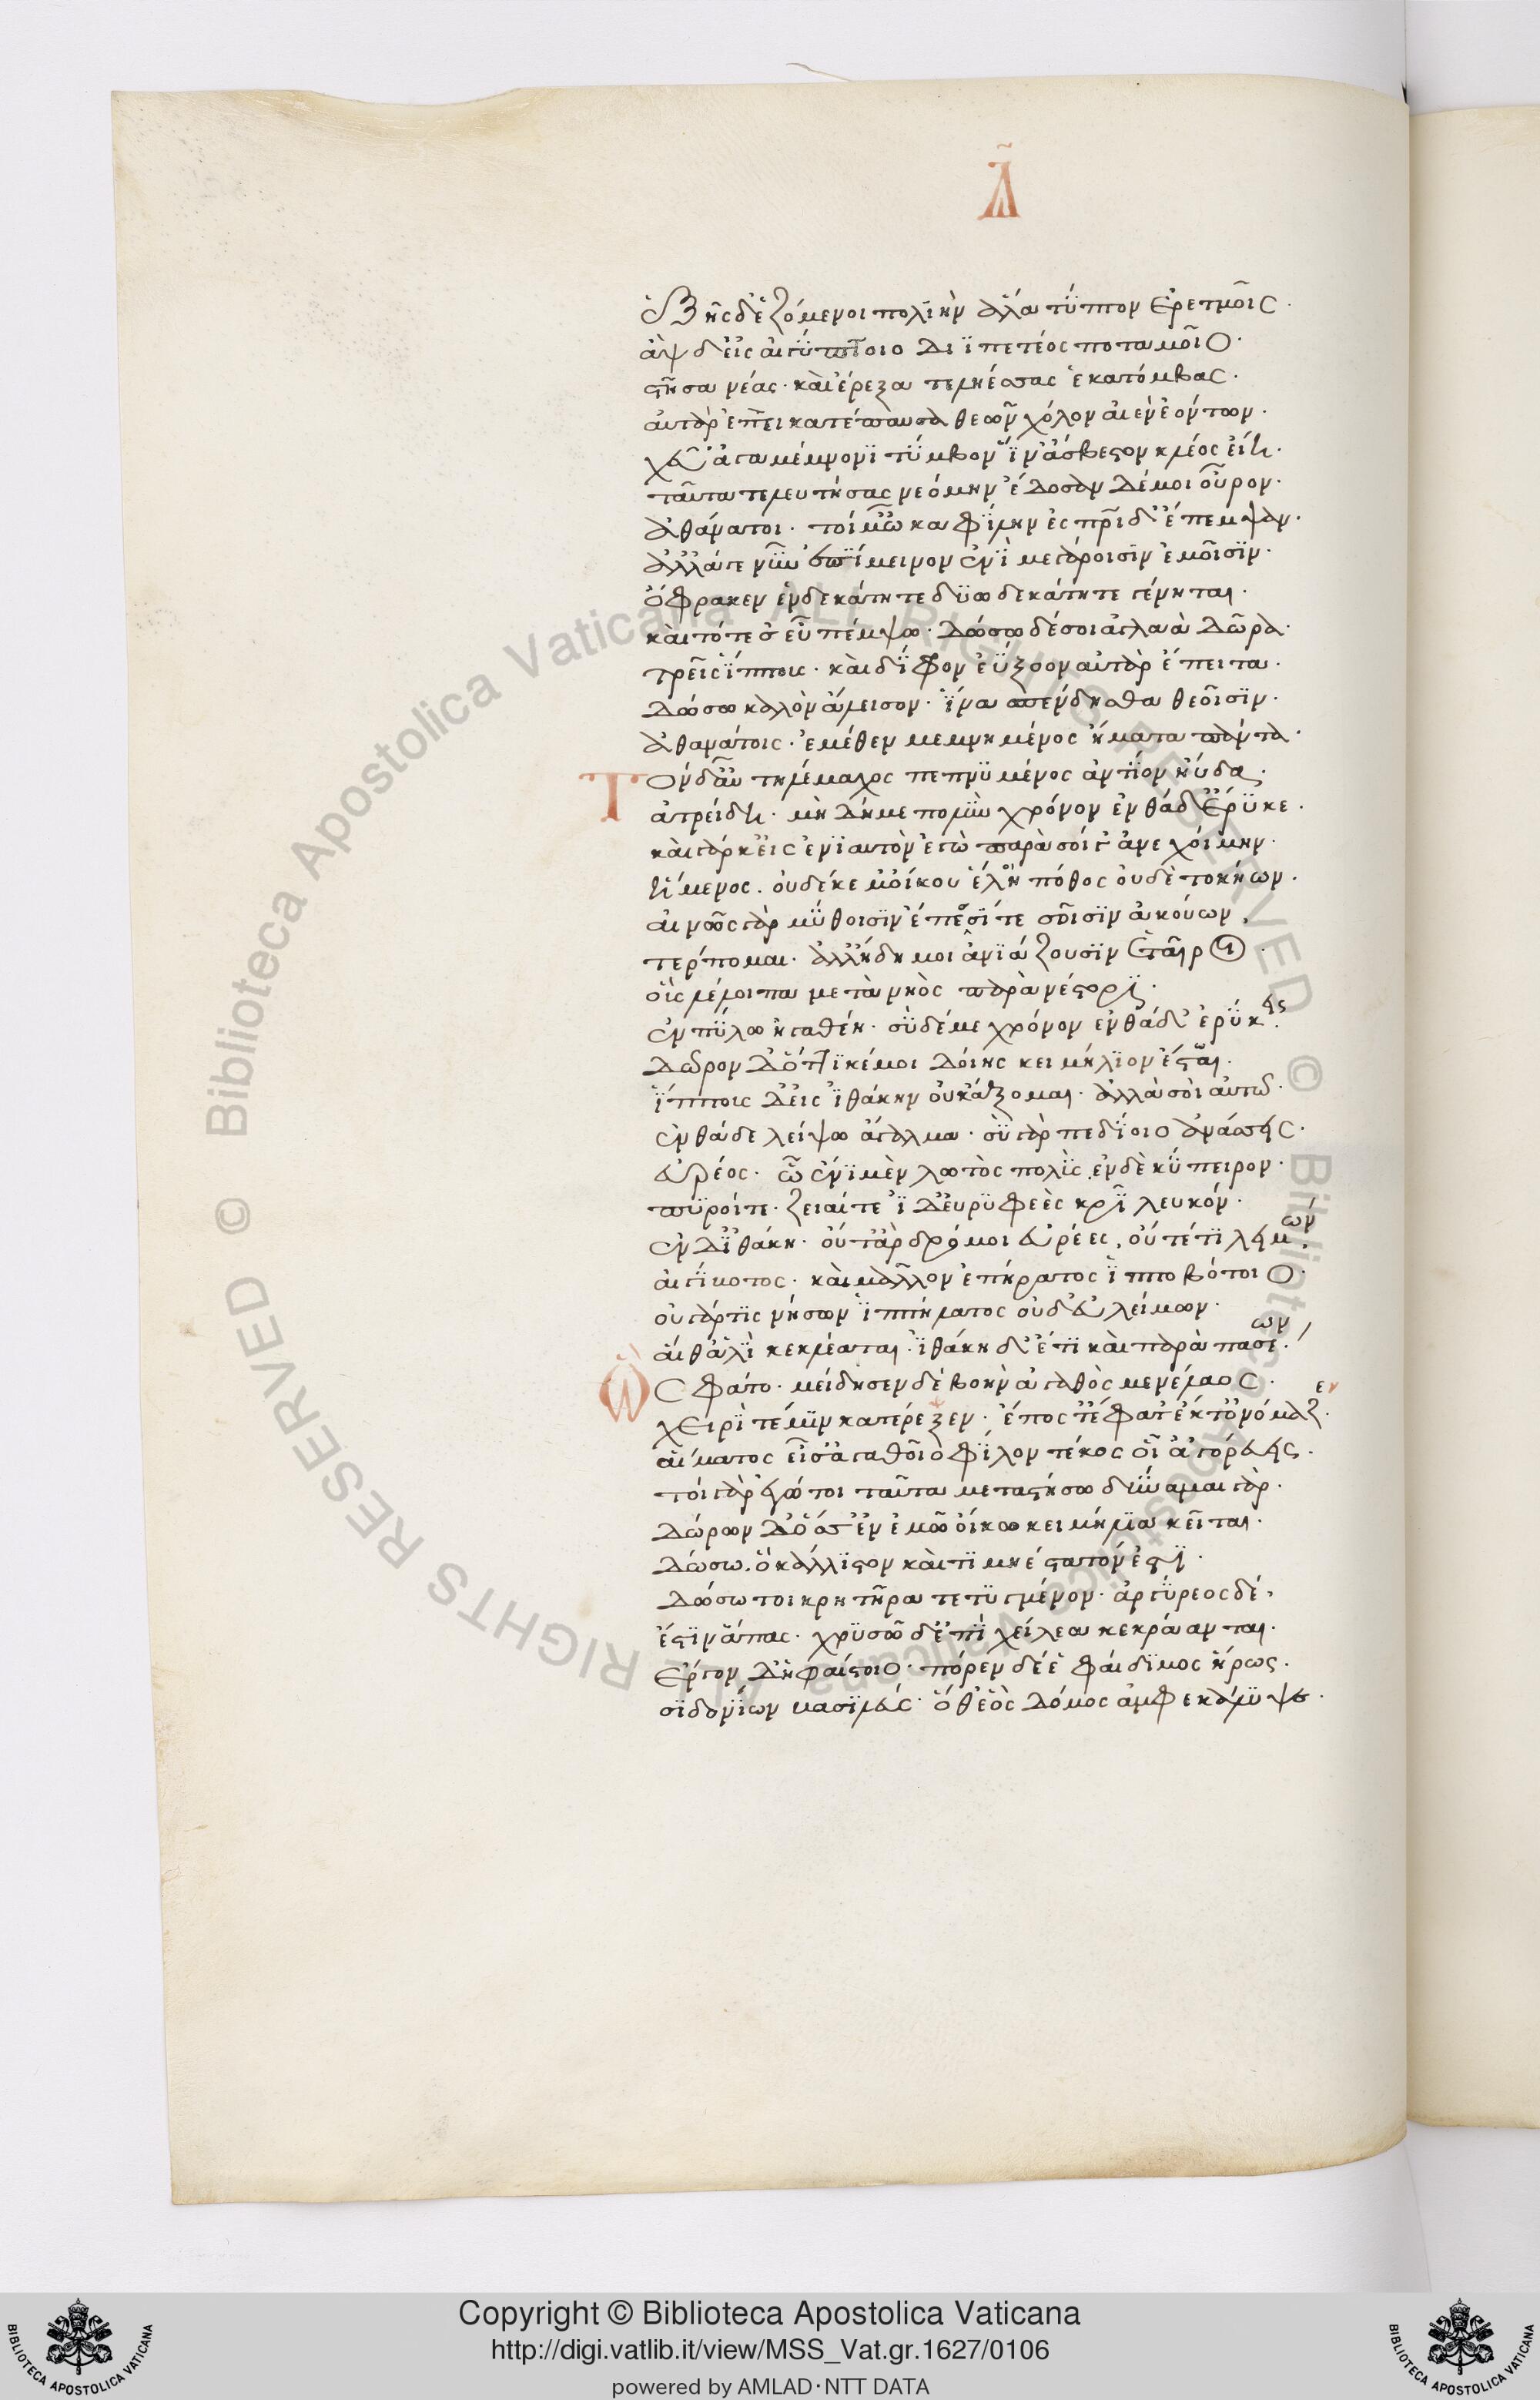 Δ
ἑξῆς δ' ἑζόμενοι πολιὴν ἅλα τύπτον ἐρετμοῖς·
ἂψ δ' εἰς αἰγύπτοιο διϊπετέος ποταμοῖο·
στῆσα νέας· καὶ ἔρεξα τεληέσσας ἑκατόμβας·
αὐτὰρ ἐπεὶ κατέπαυσα θεῶν χόλον αἰὲν ἐόντων·
χεῦ' ἀγαμέμνονι τύμβον ἵν' ἄσβεστον κλέος εἴη·
ταῦτα τελευτήσας νεόμην ἔδοσαν δέ μοι οὖρον·
ἀθάνατοι· τοί μ' ὦκα φίλην ἐς πατρίδ' ἔπεμψαν·
ἀλλ' ἄγε νῦν ἐπίμεινον ἐνὶ μεγάροισιν ἐμοῖσιν·
ὄφρα κεν ἑνδεκάτη τε δυωδεκάτη τε γένηται·
καὶ τότε σ' εὖ πέμψω· δώσω δέ σοι ἀγλαὰ δῶρα·
τρεῖς ἵππους· καὶ δίφρον ἐΰξοον αὐτὰρ ἔπειτα·
δώσω καλὸν ἄλεισον· ἵνα σπένδησθα θεοῖσιν·
ἀθανάτοις· ἐμέθεν μεμνημένος ἤματα πάντα·
Τὸν δ' αὖ τηλέμαχος πεπνυμένος ἀντίον ηὔδα·
ἀτρείδη· μὴ δή με πολὺν χρόνον ἐνθάδ' ἔρυκε·
καὶ γάρ κ' εἰς ἐνιαυτὸν ἐγὼ παρὰ σοί γ' ἀνεχοίμην·
ἥμενος· οὐδέ κέ μ' οἴκου ἕλοι πόθος οὐδὲ τοκήων·
αἰνῶς γὰρ μύθοισιν ἔπεσσί τε σοῖσιν ἀκούων·
τέρπομαι· ἀλλ' ἤδη μοι ἀνιάζουσιν ἑταῖροι·
οἷς λέλοιπα μετὰ νηὸς παρὰ νέστορι·
ἐν πύλω ἠγαθέη· σὺ δέ με χρόνον ἐνθάδ' ἐρύκεις·
δῶρον δ' ὅττί κέ μοι δοίης κειμήλιον ἔσται·
ἵππους δ' εἰς ἰθάκην οὐκ ἄξομαι· ἀλλὰ σοὶ αὐτῶ·
ἐνθάδε λείψω ἄγαλμα· σὺ γὰρ πεδίοιο ἀνάσσεις·
εὐρέος· ὧ ἔνι μὲν λωτὸς πολὺς ἐν δὲ κύπειρον·
πυροί τε· ζειαί τε ἰδ' εὐρυφυὲς κρῖ λευκόν·
ἐν δ' ἰθάκη· οὔτ' ἂρ δρόμοι εὐρέες, οὔτέ τι λειμών·
αἰγίβοτος· καὶ μᾶλλον ἐπήρατος ἱπποβότοιο·
οὐ γάρ τις νήσων ἱππήλατος οὐδ' εὐλείμων·
αἵ θ' ἁλὶ κεκλέαται· ἰθάκη δ' ἔτι καὶ παρὰ πασέων·
Ὣς φάτο· μείδησεν δὲ βοὴν ἀγαθὸς μενέλαος·
χειρί τέ μιν κατέρεξεν· ἔπος τ' ἔφατ' ἔκ τ' ὀνόμαζεν·
αἵματος εἶς ἀγαθοῖο φίλον τέκος οἷ' ἀγορεύεις·
τοὶ γὰρ ἐγώ τοι ταῦτα μεταστήσω δύναμαι γάρ·
δώρων δ' ὅσσ' ἐν ἐμῶ οἴκω κειμήλια κεῖται·
δώσω· ὃ κάλλιστον καὶ τιμηέστατόν ἐστι·
δώσω τοι κρητῆρα τετυγμένον· ἀργύρεος δέ,
ἔστιν ἅπας· χρυσῶ δ' ἐπὶ χείλεα κεκράανται·
ἔργον δ' ἡφαίστοιο· πόρεν δέ ἑ φαίδιμος ἥρως·
σιδονίων βασιλεύς· ὅθ' ἑὸς δόμος ἀμφεκάλυψε·
© Biblioteca Apostolica Vaticana ALL RIGHTS RESERVED © Biblioteca Apostolica Vaticana ALL RIGHTS RESERVED
BIBLIOTECA APOSTOLICA VATICANA
Copyright © Biblioteca Apostolica Vaticana
http://digi.vatlib.it/view/MSS_Vat.gr.1627/0106
powered by AMLAD·NTT DATA
BIBLIOTECA APOSTOLICA VATICANA